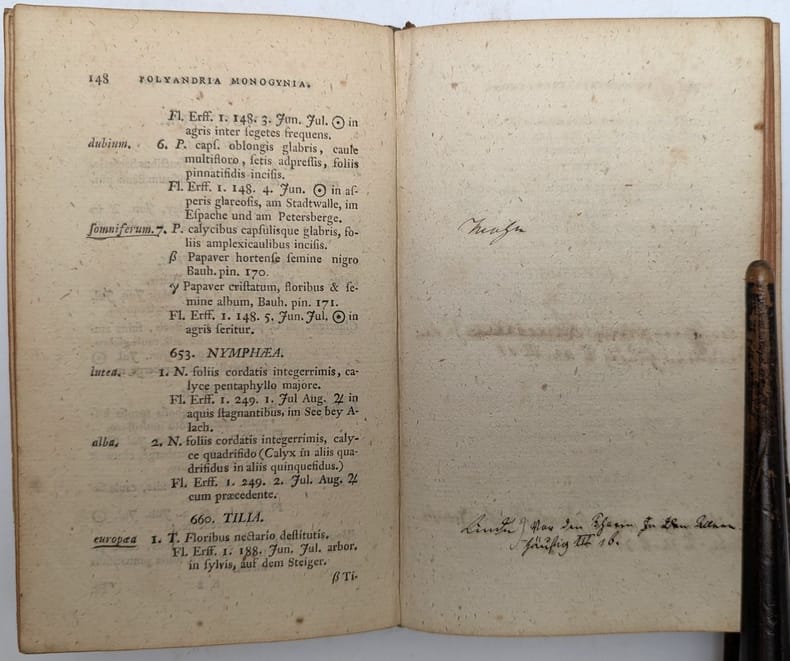 148 POLYANDRIA MONOGYNIA.
Fl. Erff. 1. 148. 3. Jun. Jul. ☉ in
agris inter ſegetes frequens.
dubium. 6. P. capſ. oblongis glabris, caule
multifloro, ſetis adpreſſis, foliis
pinnatifidis inciſis.
Fl. Erff. 1. 148. 4. Jun. ☉ in aſ-
peris glareoſis, am Stadtwalle, im
Eſpache und am Petersberge.
ſomniferum. 7. P. calycibus capſulisque glabris, fo-
liis amplexicaulibus inciſis.
β Papaver hortenſe ſemine nigro
Bauh. pin. 170.
γ Papaver criſtatum, floribus & ſe-
mine album, Bauh. pin. 171.
Fl. Erff. 1. 148. 5. Jun. Jul. ☉ in
agris ſeritur.
653. NYMPHÆA.
lutea. 1. N. foliis cordatis integerrimis, ca-
lyce pentaphyllo majore.
Fl. Erff. 1. 249. 1. Jul Aug. ♃ in
aquis ſtagnantibus, im See bey A-
lach.
alba. 2. N. foliis cordatis integerrimis, caly-
ce quadrifido (Calyx in aliis qua-
drifidus in aliis quinquefidus.)
Fl. Erff. 1. 249. 2. Jul. Aug. ♃
cum præcedente.
660. TILIA.
europæa 1. T. Floribus nectario deſtitutis.
Fl. Erff. 1. 188. Jun. Jul. arbor.
in ſylvis, auf dem Steiger.
β Ti-
Mohn
Linde) Vor den
häufig